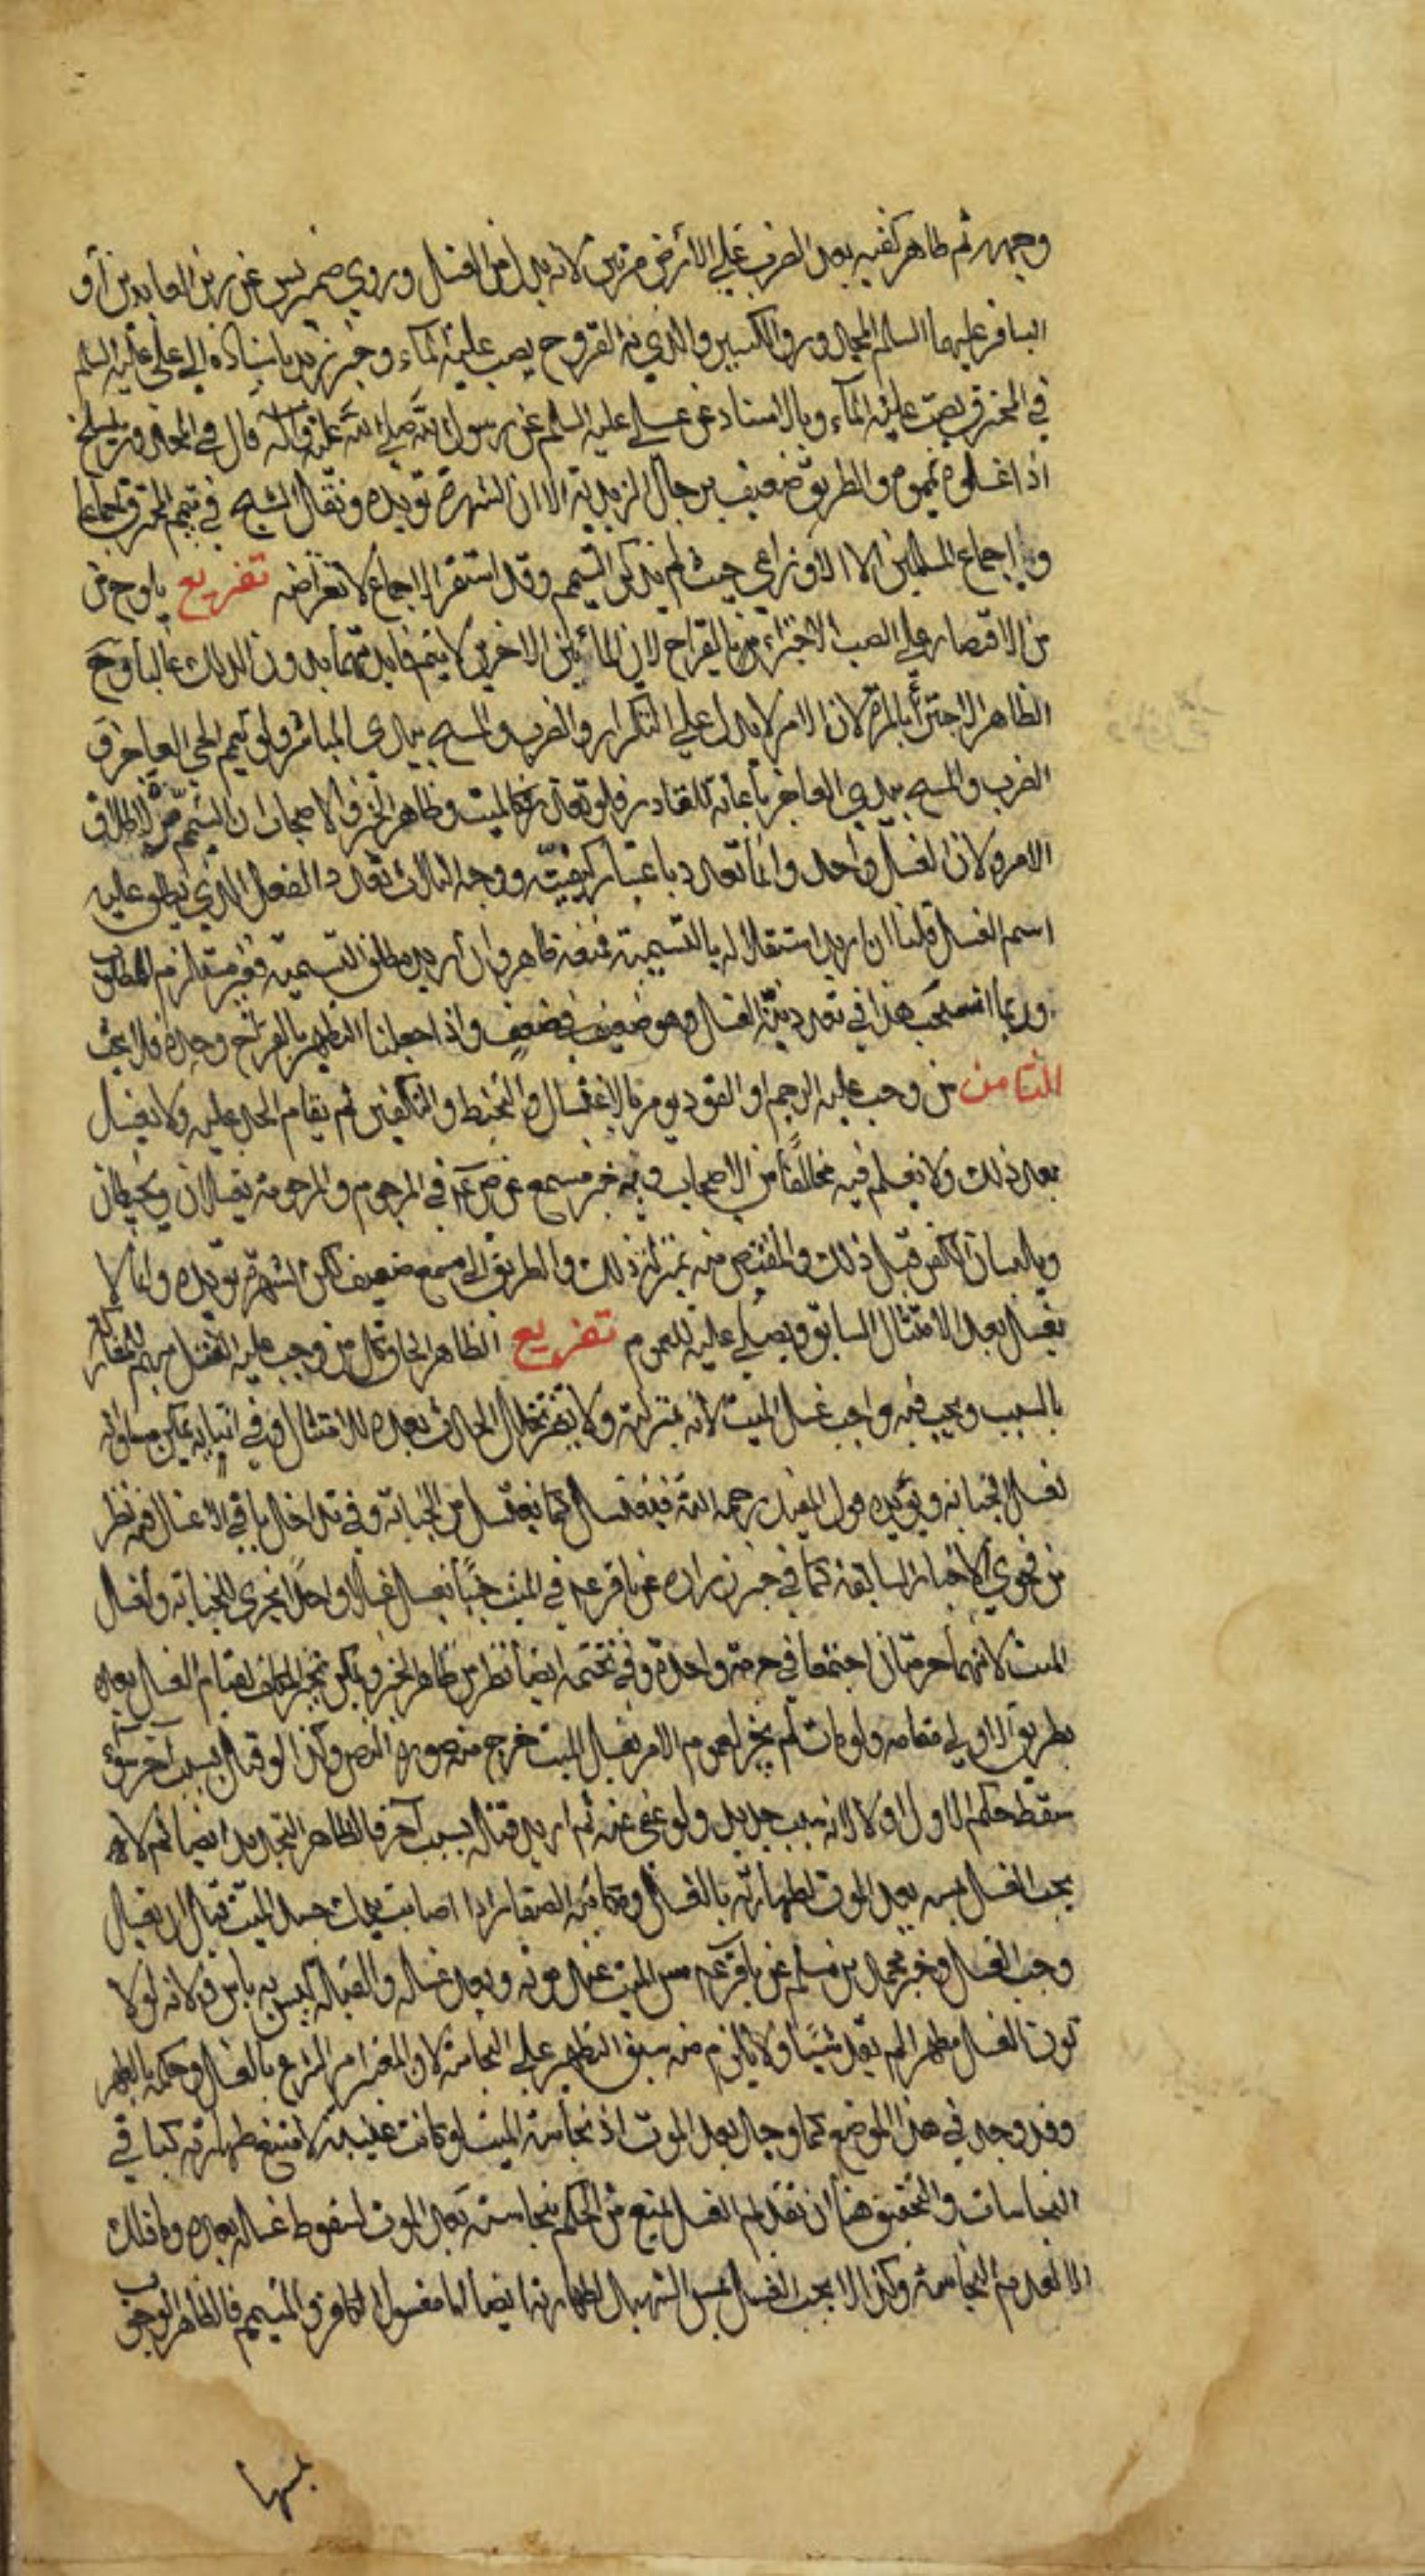 وجهه ثم ظاهر كفيه بعد الضرب على الأرض مرتين لانه بدل من الغسل وروى ضريس عن زين العابدين أو
الباقر عليهما السلم المجدور والكسير والذي به القروح يصب عليه الماء وخبر زيد باسناده الى علي عليه السلم
في المحترق يصب عليه الماء وبالاسناد عن علي عليه السلم عن رسول الله صلى الله عليه وآله قال في المجدور يتسلخ
اذا غسلوه يمموه والطريق ضعيف برجال الزيدية الا ان الشهرة تؤيده ونقل الشيخ في تيمم المحترق اجماعنا
و اجماع المسلمين الا الاوزاعي حيث لم يذكر التيمم وقد استقر الاجماع لانقراضه تفريع يلوح من
من الاقتصار على الصب الاجتزاء بالقراح لان المائين الاخرين لا يتم فايدتهما بدون الدلك غالبا وح
الظاهر الاجتزأ بالمرة لان الامر لا يدل على التكرار والضرب والمسح بيدى المباشر ولو يمم الحي العاجز ف
الضرب والمسح بيدي العاجز باعانة القادر فلو تعذر فكالميت وظاهر الخبر والاصحاب ان التيمم مرة لاطلاق
الامر ولان الغسل واحد وانما تعدد باعتبار كيفيته ووجه الثلاث تعدد الفعل الذي يطلق عليه
اسم الغسل قلنا ان اريد استقلاله بالتسمية فمنعه ظاهر وان اريد مطلق التسمية فغير مستلزم المطلوب
وربما انسحب هذا في تعدد نية الغسل وهو ضعيف في ضعيف واذا جعلنا التطهير بالقراح وحده فلا بحث
الثامن من وجب عليه الرجم او القود يومر بالاغتسال والتحنيط والتكفين ثم يقام الحد عليه ولا يغسل
بعد ذلك ولا نعلم فيه مخالفا من الاصحاب وبه خبر مسمع عن ص ع في المرجوم والمرجومة يغسلان ويحنطان
ويلبسان الكفن قبل ذلك والمقتص منه بمنزلة ذلك والطريق الى مسمع ضعيف لكن الشهرة تؤيده وانما لا
يغسل بعد الامتثال السابق ويصلى عليه للعموم تفريع الظاهر الحاق كل من وجب عليه القتل بهم للمشاركة
بالسبب ويجب فيه واجب غسل الميت لانه بمنزلته ولا يضر تخلل الحدث بعده للامتثال وفي اثنائه يمكن مساواته
لغسل الجنابة ويؤيده قول المفيد رحمه الله فيغتسل كما يغتسل من الجنابة وفي تداخل باقي الاغسال فيه نظر
من فحوى الاخبار السابقة كما في خبر زراره عن باقر ع في الميت جنبا يغسل غسلا واحدا يجزي للجنابة ولغسل
الميت لانهما حرمتان اجتمعتا في حرمة واحدة وفي تحتمه ايضا نظر من ظاهر الخبر ويمكن تخير المكلف لقيام الغسل بعده
بطريق الاولى مقامه ولو مات لم يجز لعموم الامر بغسل الميت خرج منه صورة النص وكذا لو قتل بسبب آخر سواء
سقط حكم الاول او لا لانه سبب جديد ولو عفى عنه ثم اريد قتله بسبب آخر فالظاهر التجديد ايضا ثم لا
يجب الغسل بمسه بعد الموت لطهارته بالغسل ومكاتبة الصفار اذا اصابت يدك جسد الميت قبل ان يغسل
وجب الغسل وخبر محمد بن مسلم عن باقر ع مس الميت عند موته وبعد غسله والقبلة ليس به باس ولانه لولا
كون الغسل مطهرا لم يفد شيئا ولا يلزم منه سبق التطهير على النجاسة لان المعتبر امر الشارع بالغسل وحكمه بالطهر
وقد وجد في هذا الموضع كما وجد بعد الموت اذ نجاسة الميت لو كانت عينية لامتنع طهارته كباقي
النجاسات والتحقيق هنا ان تقديم الغسل يمنع من الحكم بنجاسته بعد الموت لسقوط غسله بعده وما ذلك
الا لعدم النجاسة وكذا لا يجب الغسل بمس الشهيد لطهارته ايضا اما مغسول الكافر والميمم فالظاهر الوجوب
بمسها